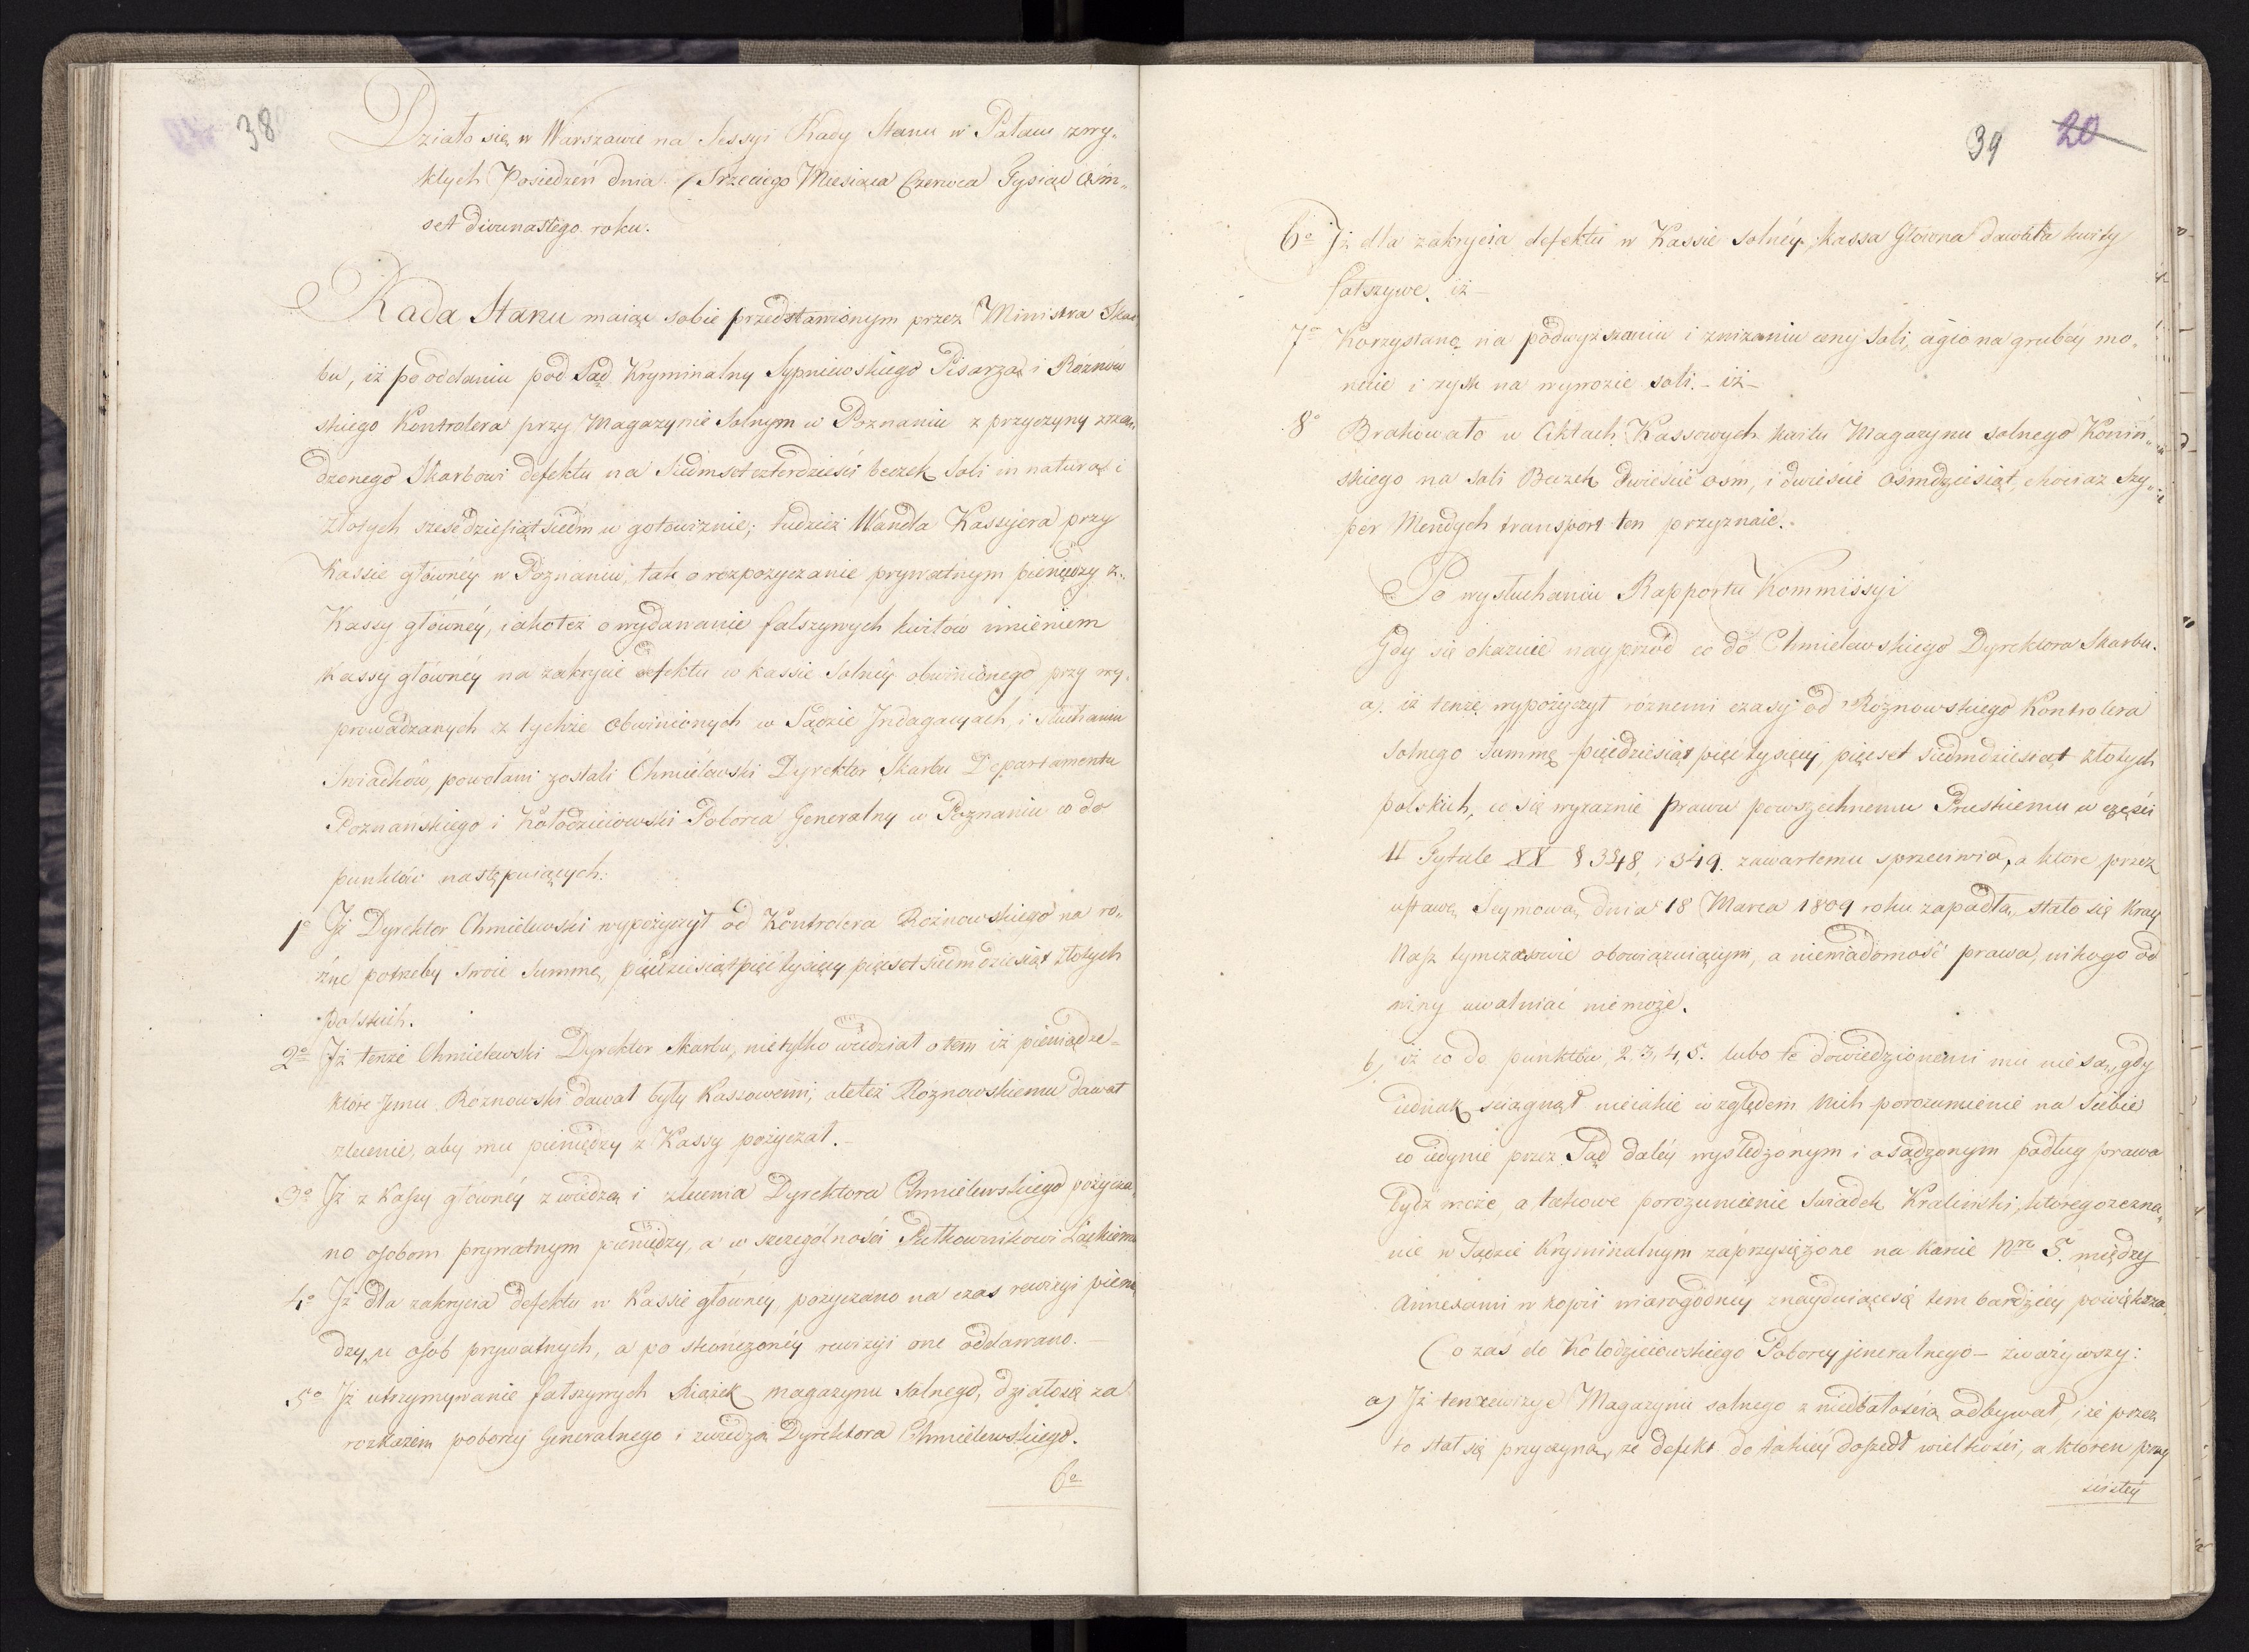 38
Działo się w Warszawie na Sessyi Rady Stanu w Pałacu zwy„
kłych Posiedzeń dnia Trzeciego Miesiąca Czerwca Tysiąc Ośm„
set dwunastego roku.
Rada Stanu maiąc sobie przedstawionym przez Ministra Skar
bu, iż po oddaniu pod Sąd Kryminalny Sypniewskiego Pisarza i Roznow
skiego Kontrolera przy Magazynie Solnym w Poznaniu z przyczyny zrzą„
dzonego Skarbowi defektu na Siedmset czterdzieści beczek Soli in natura i
złotych sześćdziesiąt siedm w gotowiznie; tudzież Wandla Kassyera przy
Kassie główney w Poznaniu, tak o rozpożyczanie prywatnym pieniędzy z„
Kassy główney, iako też o wydawanie falszywych kwitow imieniem
Kassy główney na zakrycie defektu w kassie Solney obwinionego przy wy„
prowadzanych z tychże obwinionych w Sądzie Indagacyach, i Słuchaniu
Swiadków, powołani zostali Chmielewski Dyrektor Skarbu Departamentu
Poznanskiego i Kołodzieiowski Poborca Generalny w Poznaniu co do
punktów następuiących:
1o Iż Dyrektor Chmielewski wypożyczył od Kontrolera Rożnowskiego na ro„
żne potrzeby swoie Summę, pięćdziesiąt pięć tysięcy pięćset siedmdziesiąt złotych
Polskich.
2o Iż tenże Chmielewski Dyrektor Skarbu, nie tylko wiedział o tem iż pieniądze
które Jemu Roznowski dawał były Kassowemi, ale też Rożnowskiemu dawał
zlecenie, aby mu pieniędzy z Kassy pożyczał.
3o Iż z Kassy główney z wiedzą i zlecenia Dyrektora Chmielewskiego pożycza„
no osobom prywatnym pieniędzy, a w szczególności Pułkownikowi Łąckiemu
4o Iż dla zakrycia defektu w Kassie główney, pożyczano na czas rewizyi pienię
dzy, u osób prywatnych, a po skończoney rewizyi one oddawano.
5o Iż utrzymywanie fałszywych Xiążek magazynu Solnego, działo się za
rozkazem poborcy Generalnego i zwiedzą Dyrektora Chmielewskiego.
6o
39 20
6o Iż dla zakrycia defektu w Kassie Solney, kassa Głowna dawała kwity
fałszywe, iż
7o Korzystano na podwyższaniu i zniżaniu ceny Soli, agio na grubey mo„
necie i zysk na wywozie soli. – iż –
8o Brakowało w Aktach Kassowych kwitu Magazynu solnego Koniń„
skiego na soli Beczek dwieście ośm, i dwieście ośmdziesiąt, chociaz Szy„
per Mendych transport ten przyznaie.
Po wysłuchaniu Rapportu Kommissyi
Gdy się okazuie nayprzód co do Chmielewskiego Dyrektora Skarbu.
a). iż tenże wypożyczył róznemi czasy od Rożnowskiego Kontrolera
Solnego Summę pięćdziesiąt pięć tysięcy, pięćset siedmdziesiąt złotych
polskich, co się wyraznie prawu powszechnemu Pruskiemu w części
II Tytule XX § 348, i 349. zawartemu sprzeciwia, a ktore przez
ustawę Seymową dnia 18 Marca 1809 roku zapadłą, stało się Kray
Nasz tymczasowie obowiązuiącym, a niewiadomość prawa, nikogo od
winy uwalniać nie może.
b) iż co do punktów, 2. 3, 4, 5. lubo te dowiedzionemi mu nie są, gdy
iednak sciągnął nieiakie względem nich porozumienie na siebie
co iedynie przez Sąd daléy wysledzonym i osądzonym podług prawa
bydz może, a takowe porozumienie Swiadek Kralinski, którego zezna„
nie w Sądzie Kryminalnym zaprzysiężone na Karcie Nro 5. między
Annexami w kopii wiarogodnéy znayduiącesię tem bardziéy powiększa.
Co zas do Kołodzieiowskiego Poborcy jeneralnego – zważywszy:
a) Iż ten rewizye Magazynu solnego z niedbałością odbywał, i że przez
to stał się przyczyną, że defekt do takiéy doszedł wielkości, a któren przy
scisłéy